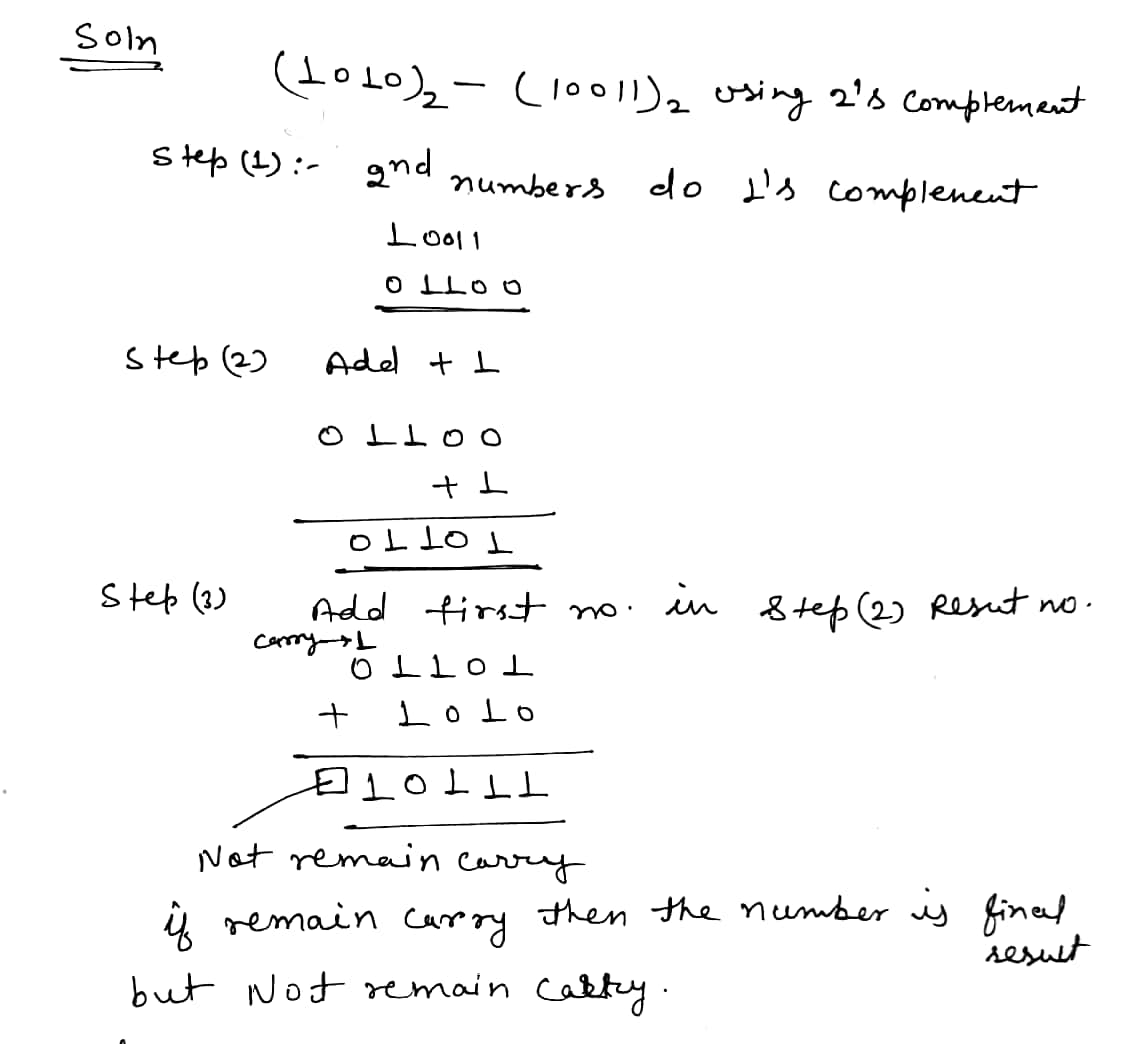 Soln
(1010)₂ - (10011)₂ using 2's complement
Step (1) :- 2nd numbers do 1's complenent
10011
01100
Step (2) Add + 1
01100
+ 1
01101
Step (3) Add first no. in Step (2) Resut no.
carry→1
01101
+ 1010
10111
Not remain carry
if remain carry then the number is final
result
but Not remain cakky.